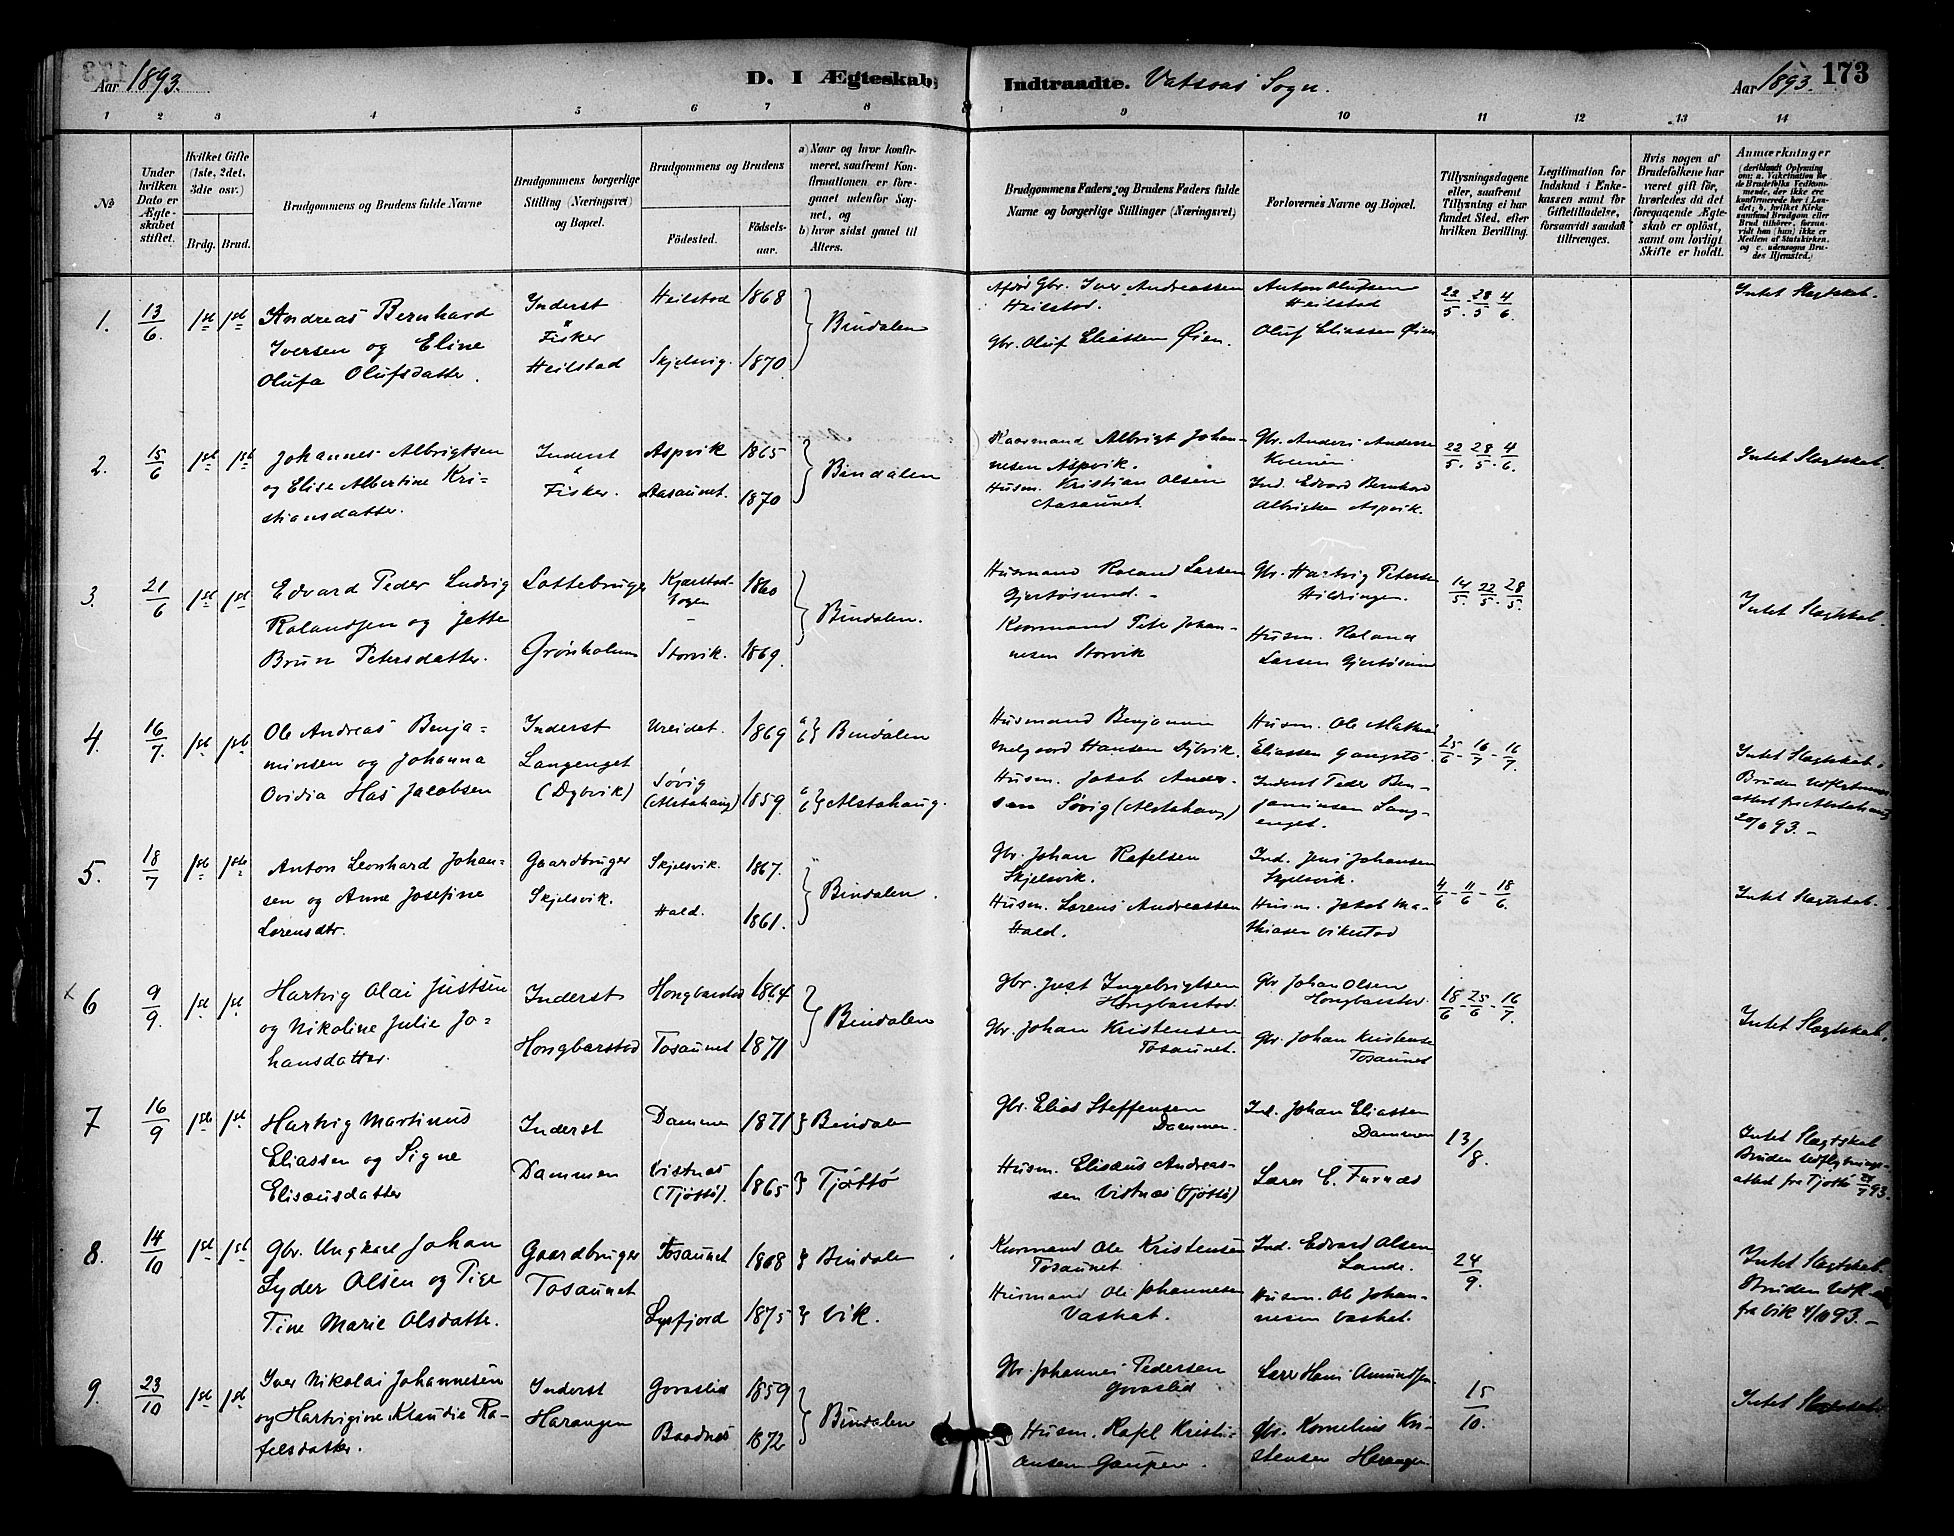 Aar 1893.
D. I Ægteskab
Indtraadte. Vatsaas Sogn.
Aar 1893. 173
1 2 3 4 5 6 7 8 9 10 11 12 13 14
No
Under hvilken Dato er Ægteskabet stiftet.
Hvilket Gifte (1ste, 2det, 3die osv.)
Brdg. Brud.
Brudgommens og Brudens fulde Navne
Brudgommens borgerlige Stilling (Næringsvei) og Bopæl.
Brudgommens og Brudens
Fødested.
Fødselsaar.
a) Naar og hvor konfirmeret, saafremt Konfirmationen er foregaaet udenfor Sognet, og
b) hvor sidst gaaet til Alters.
Brudgommens Faders og Brudens Faders fulde Navne og borgerlige Stillinger (Næringsvei)
Forlovernes Navne og Bopæl.
Tillysningsdagene eller, saafremt Tillysning ei har fundet Sted, efter hvilken Bevilling.
Legitimation for Indskud i Enkekassen samt for Giftetilladelse, forsaavidt saadan tiltrænges.
Hvis nogen af Brudefolkene har været gift før, hvorledes da det foregaaende Ægteskab er opløst, samt om lovligt Skifte er holdt.
Anmærkninger
1. 13/6. 1ste 1ste
Andreas Bernhard
Iversen og Eline
Olufa Olufsdatter.
Inderst
&
Fisker
Heilstad
Heilstad 1868
Skjelsvig. 1870
Bindalen
Afdød Gbr. Iver Andreassen
Heilstad.
Gbr. Oluf Eliassen Øien.
Anton Olufsen
Heilstad
Oluf Eliassen Øien
22/5. 28/5 4/6
Intet Slægtskab.
2. 15/6 1ste 1ste
Johannes Albrigtsen
og Elise Albertine Kri-
stiansdatter.
Inderst
&
Fisker.
Aspvik 1865
Aasaunet. 1870
Bindalen
Kaarmand Albrigt Johan-
nesen Aspvik.
Husm. Kristian Olsen
Aasaunet
Gbr. Anders Andersen
Ind. Edvard Bernhard
Albrigtsen Aspvik.
22/5. 28/5. 4/6.
Intet Slægtskab.
3. 21/6 1ste 1ste
Edvard Peder Ludvig
Rolandsen og Jette
Brun Petersdatter.
Grønholmen
Storvik. 1860
1869.
Bindalen.
Husmand Roland Larsen
Gjertøsund.
Kaarmand Peter Johan-
nesen Storvik
Gbr. Hartvig Petersen
Hildringen.
Husm. Roland
Larsen Gjertøsund
14/5. 22/5. 28/5.
Intet Slægtskab.
4. 16/7. 1ste 1ste
Ole Andreas Benja-
minsen og Johanna
Ovidia Has Jacobsen
Inderst
Langenget
(Dybvik)
Ureidet. 1869
Søvig
(Alstahaug) 1859.
a b Bindalen
a b Alstahaug.
Husmand Benjamin
Melgaard Hansen Dybvik.
Husm. Jakob Ander-
sen Søvig (Alstahaug)
Husm. Ole Mathias
Eliassen Gangstø.
Inderst Peder Ben-
jaminsen Lang-
enget.
25/6 - 16/7 - 16/7.
Intet Slægtskab.
Bruden Udflytnings-
attest fra Alstahaug
20/6 93.
5. 18/7 1ste 1ste
Anton Leonhard Johan-
sen og Anne Josefine
Lorensdtr.
Gaardbruger
Skjelsvik.
Skjelsvik. 1867.
Hald. 1861.
Bindalen.
Gbr. Johan Rafelsen
Skjelsvik.
Husm. Lorens Andreassen
Hald.
Ind. Jens Johansen
Skjelsvik.
Husm. Jakob Ma-
thiasen Vikestad
4/6 - 11/6 - 18/6.
Intet Slægtskab.
x 6 9/9. 1ste 1ste
Hartvig Olai Justsen
og Nikoline Julie Jo-
hansdatter.
Inderst
Hongbarstad
Hongbarstad 1864
Tosaunet 1871
Bindalen
Gbr. Just Ingebrigtsen
Hongbarstad.
Gbr. Johan Kristensen
Tosaunet.
Gbr. Johan Olsen
Hongbarstad.
Gbr. Johan Kristensen
Tosaunet
18/6 - 25/6 - 16/7.
Intet Slægtskab.
7 16/9 1ste 1ste
Hartvig Martinus
Eliassen og Signe
Elisæusdatter
Inderst
Dammen
Dammen 1871
Vistnæs
(Tjøttø). 1865
Bindalen
Tjøttø
Gbr. Elias Steffensen
Dammen.
Husm. Elisæus Andreas-
sen Vistnæs (Tjøttø)
Ind. Johan Eliassen
Dammen
Lærer E. Furnæs
13/8.
Intet Slægtskab
Bruden Udflytnings-
attest fra Tjøttø 93.
8. 14/10 1ste 1ste
Gbr. Ungkarl Johan
Lyder Olsen og Pige
Tine Marie Olsdatter.
Gaardbruger
Tosaunet
Tosaunet 1868
Lysfjord 1875
Bindalen
Vik.
Kaarmand Ole Kristensen
Tosaunet
Husmand Ole Johannesen
Vaskat.
Ind. Edvard Olsen
Lande.
Husm. Ole Johan-
nesen Vaskat.
24/9.
Intet Slægtskab.
Bruden Udfl.
fra Vik 4/10 93.
9. 23/10 1ste 1ste
Iver Nikolai Johannesen
og Hartvigine Klaudie Ra-
felsdatter.
Inderst
Harangen
Gvaslid 1859
Baadnes 1872
Bindalen
Gbr. Johannes Pedersen
Gvaslid
Husm. Rafel Kristi-
ansen Gaupen.
Lærer Hans Amundsen
Gbr. Kornelius Kri-
stensen Harangen
15/10.
Intet Slægtskab